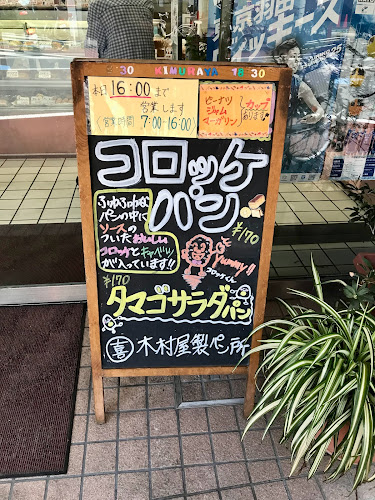 :30 KIMURAYA 18:30
本日 16:00まで
営業します
(営業時間 7:00-16:00)
ピーナツ
ジャム
マーガリン
カップ
あります
コロッケ
パン
¥170
ふわふわな
パンの中に
ソースの
ついたおいしい
コロッケとキャベツ
が入っています!!
Yummy!!
コロッケくん
¥170
タマゴサラダパン
喜 木村屋製パン所